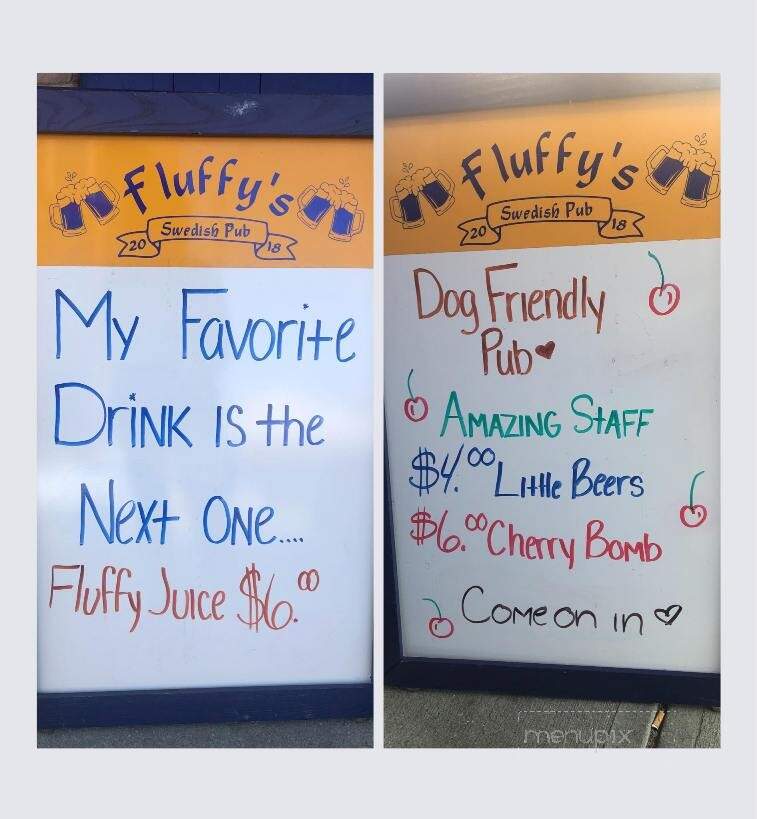 Fluffy's
Swedish Pub
20 18
My Favorite
Drink is the
Next One....
Fluffy Juice $6.00
Fluffy's
Swedish Pub
20 18
Dog Friendly
Pub
Amazing Staff
$4.00 Little Beers
$6.00 Cherry Bomb
Come on in
menupix